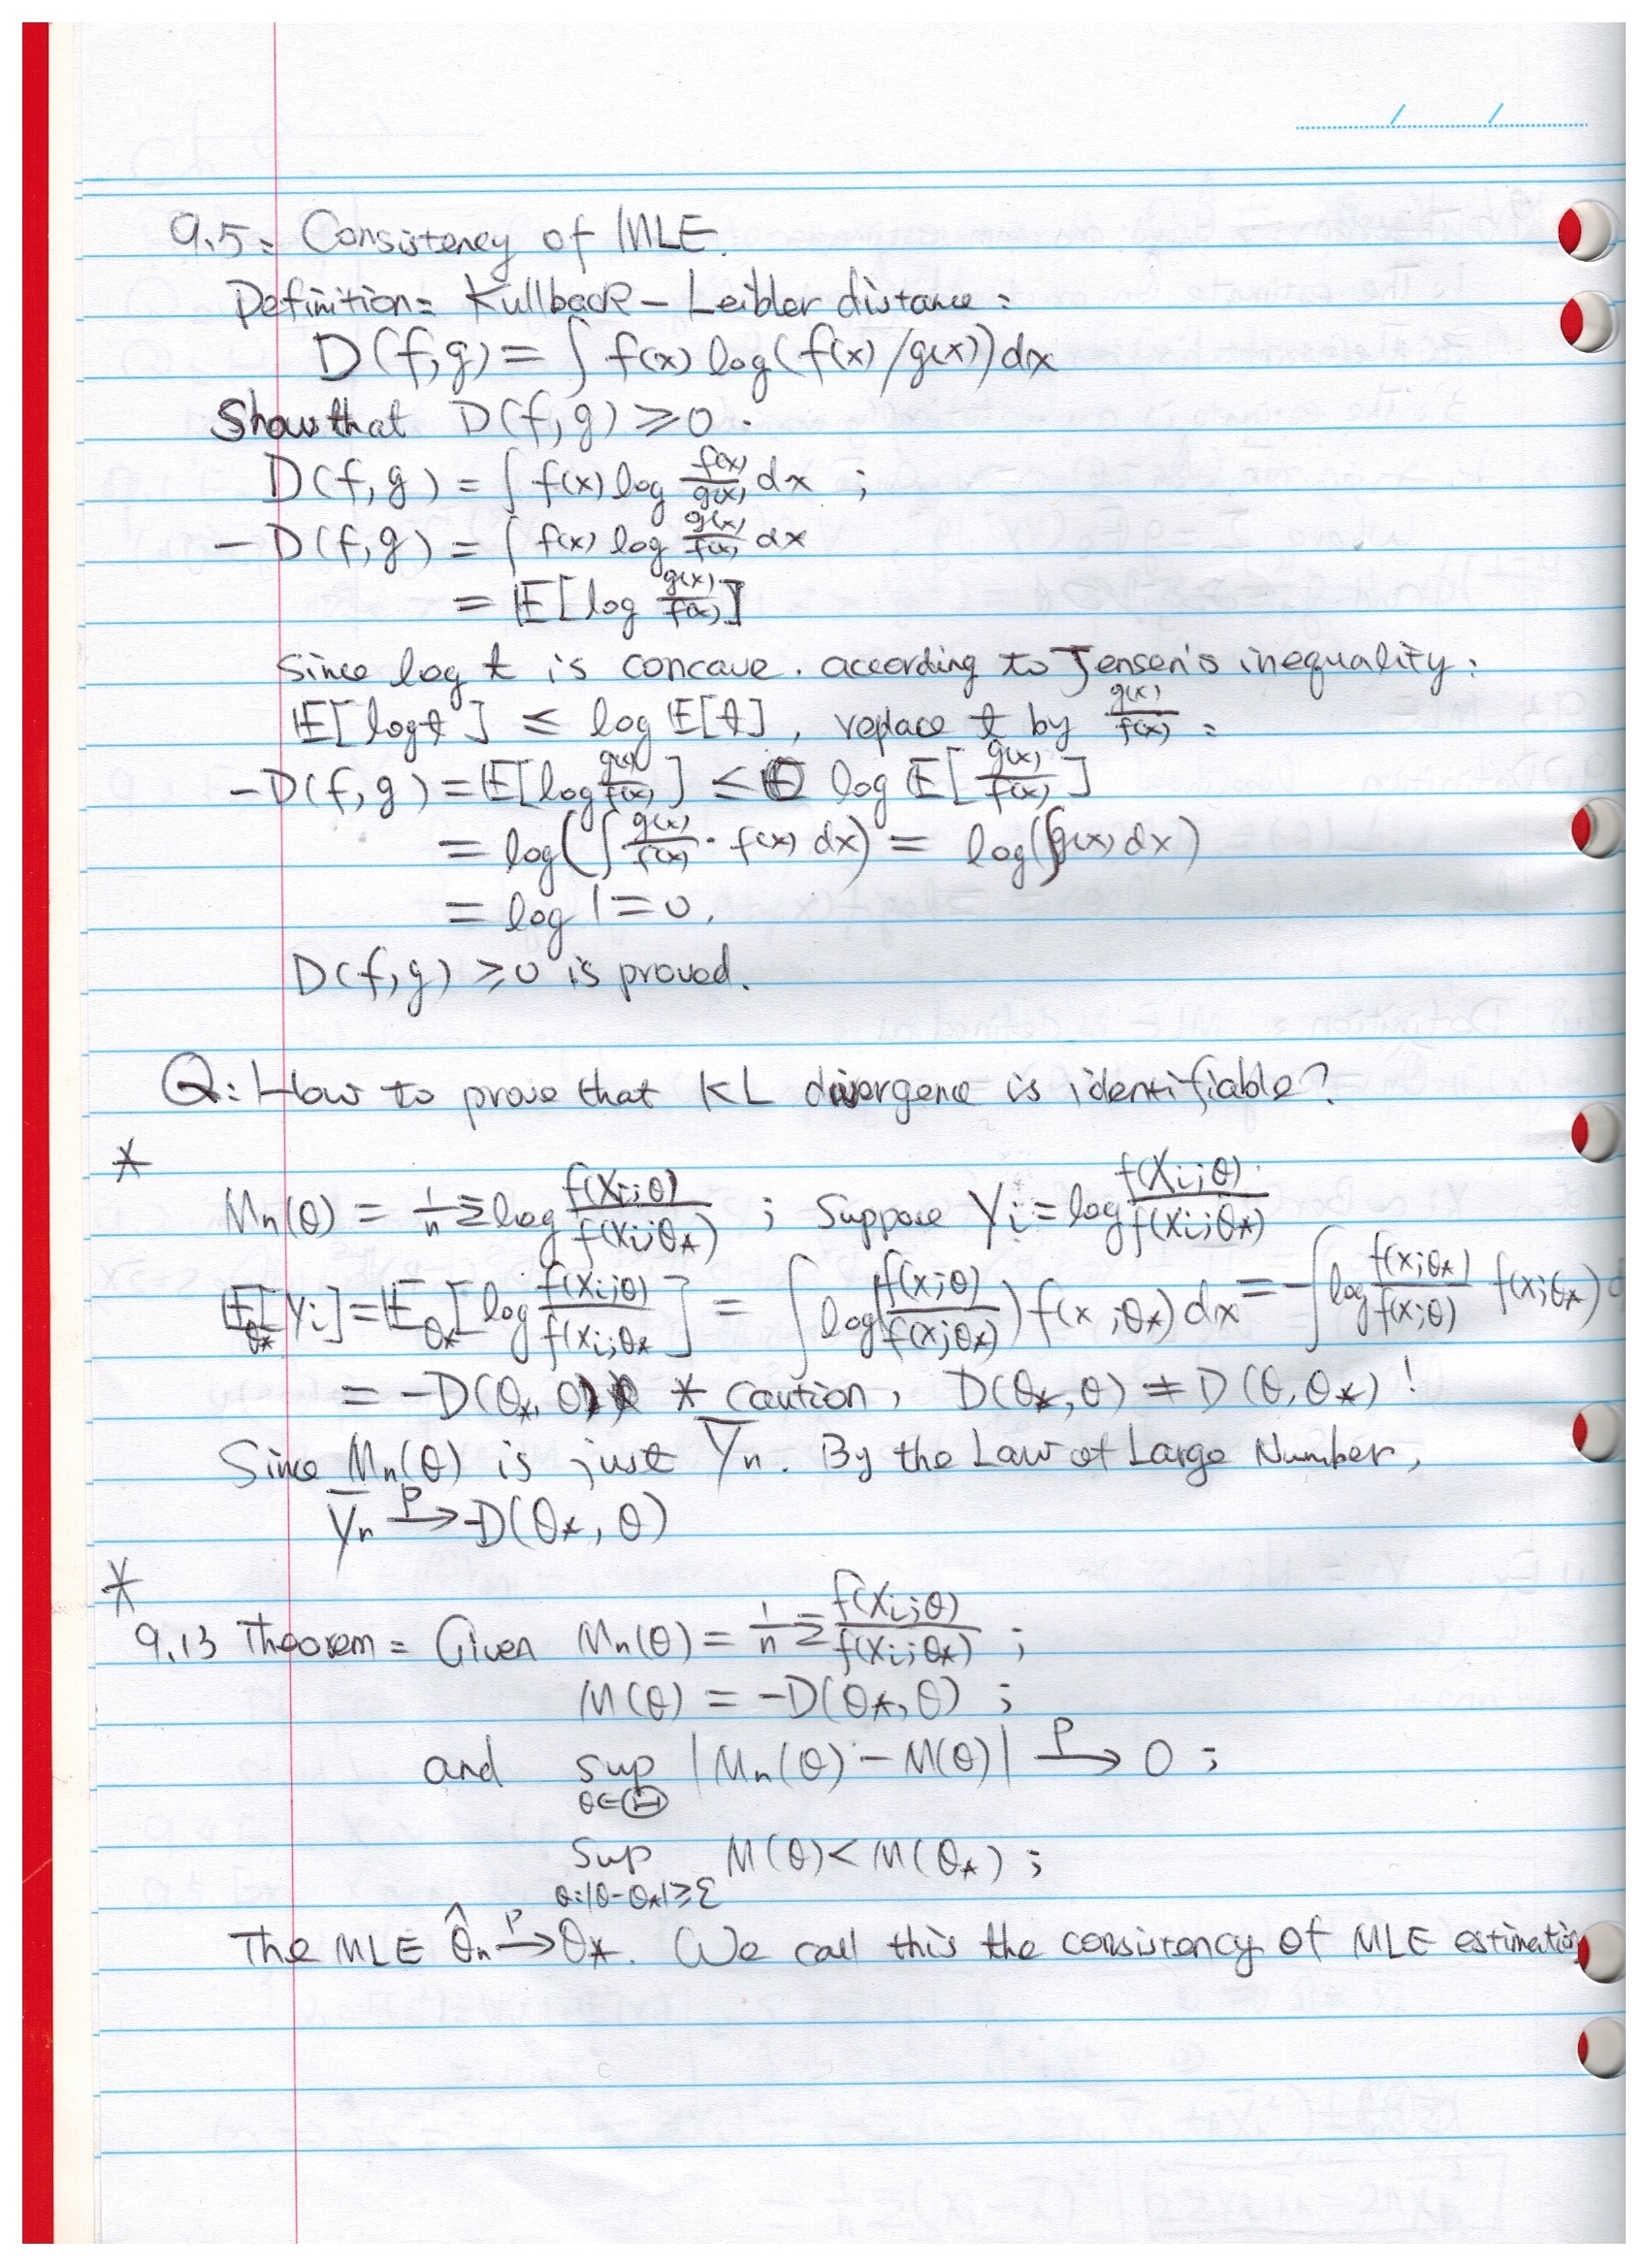 9.5: Consistency of MLE.
Definition: Kullback-Leibler distance:
D(f,g) = ∫ f(x) log(f(x)/g(x))dx
Show that D(f,g) ⩾ 0.
D(f,g) = ∫ f(x) log f(x)/g(x) dx ;
-D(f,g) = ∫ f(x) log g(x)/f(x) dx
= E[log g(x)/f(x)]
Since log t is concave. according to Jensen's inequality:
E[log t] ≤ log E[t], replace t by g(x)/f(x) :
-D(f,g) = E[log g(x)/f(x)] ≤ log E[g(x)/f(x)]
= log(∫ g(x)/f(x) · f(x) dx) = log(∫g(x) dx)
= log 1 = 0.
D(f,g) ⩾ 0 is proved.
Q: How to prove that KL divergence is identifiable?
*
Mn(θ) = 1/n Σ log f(Xi;θ)/f(Xi;θ*) ; Suppose Yi = log f(Xi;θ)/f(Xi;θ*)
E_θ*[Yi] = E_θ*[log f(Xi;θ)/f(Xi;θ*] = ∫ log(f(x;θ)/f(x;θ*)) f(x;θ*) dx = -∫ log f(x;θ*)/f(x;θ) f(x;θ*) d
= -D(θ*, θ) * caution, D(θ*,θ) ≠ D(θ,θ*)!
Since Mn(θ) is just Ȳn. By the Law of Large Number,
Ȳn →ᴾ -D(θ*, θ)
*
9.13 Theorem: Given Mn(θ) = 1/n Σ f(Xi;θ)/f(Xi;θ*) ;
M(θ) = -D(θ*,θ) ;
and sup_θ∈Θ |Mn(θ) - M(θ)| →ᴾ 0 ;
sup_θ:|θ-θ*|⩾ε M(θ) < M(θ*) ;
The MLE θ̂n →ᴾ θ*. We call this the consistency of MLE estimation